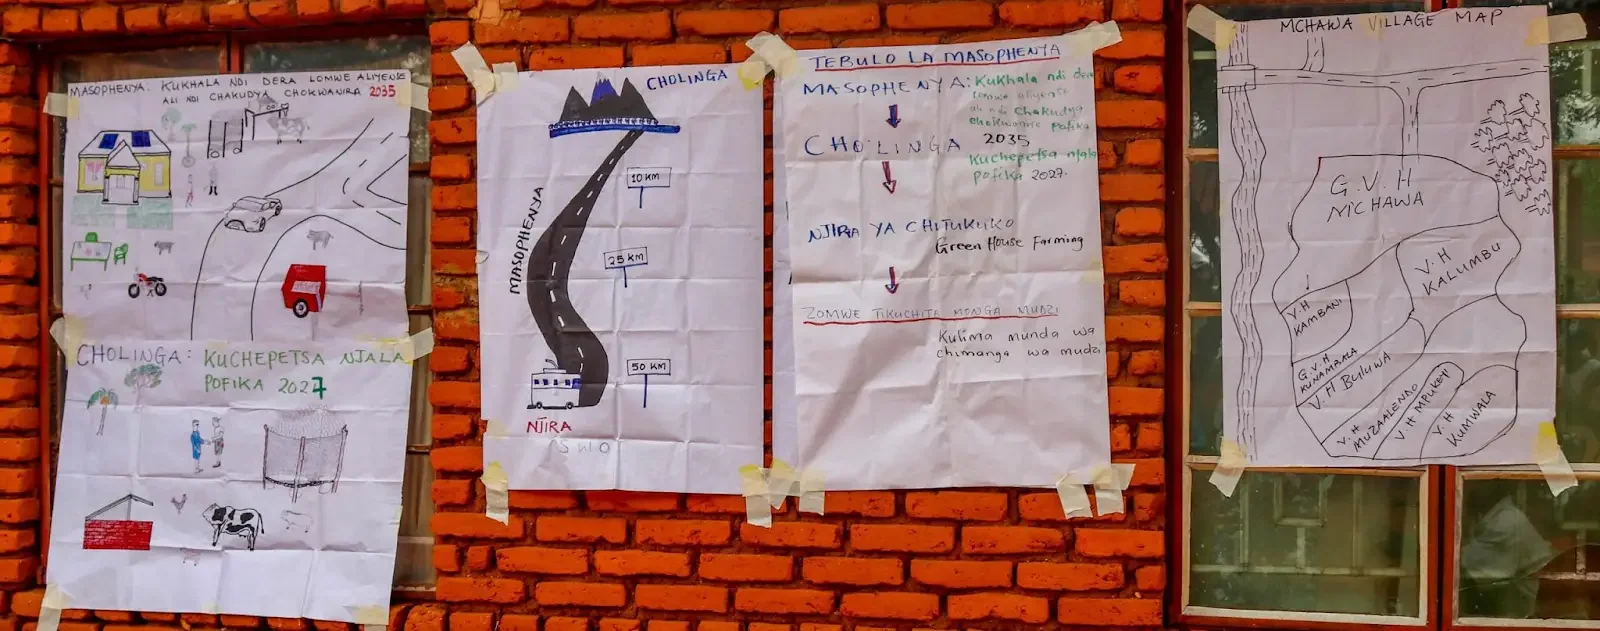 MASOPHENYA: KUKHALA NDI DERA LOMWE ALIYENSE
ALI NDI CHAKUDYA CHOKWANIRA 2035
CHOLINGA: KUCHEPETSA NJALA
POFIKA 2027
CHOLINGA
10 KM
MASOPHENYA
25 KM
50 KM
NJIRA
TEBULO LA MASOPHENYA
MASOPHENYA: Kukhala ndi dera
lomwe aliyense
ali ndi chakudya
chokwanira pofika
CHOLINGA 2035
Kuchepetsa njala
pofika 2027.
NJIRA YA CHITUKUKO
Green House Farming
ZOMWE TIKUCHITA MONGA MUDZI
Kulima munda wa
chimanga wa mudzi
MCHAWA VILLAGE MAP
G.V.H
MCHAWA
V.H
KALUMBU
V.H
KAMBANI
G.V.H
V.H BULUWA
V.H
MUZALENDO
V.H MPUKEYI
V.H
KUMWALA